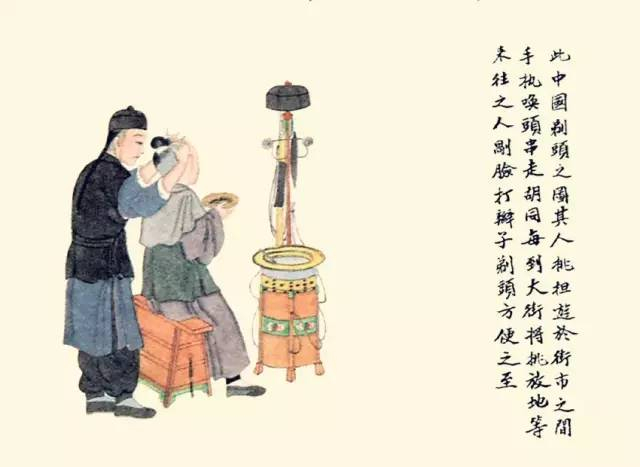 此中國剃頭之圖其人挑担遊於街市之間
手执喚頭串走胡同每到大街将挑放地等
来往之人剮臉打辮子剃頭方便之至